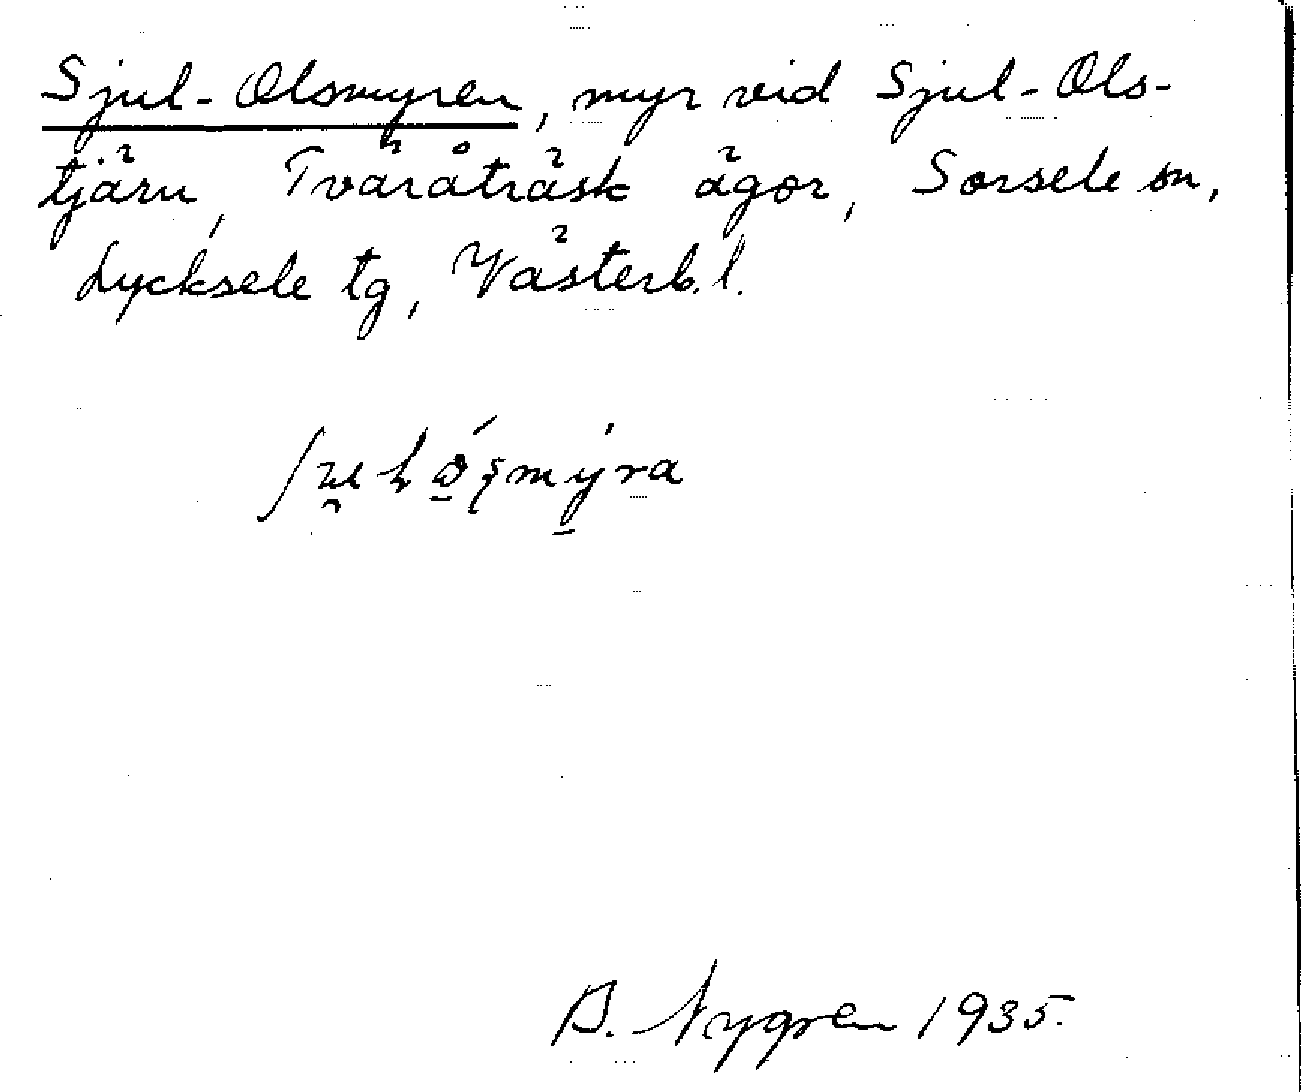 Sjul-Olsmyren, myr vid Sjul-Ols-
tjärn, Tväråträsk ägor, Sorsele sn,
Lycksele tg, Västerb. l.
B. Nygren 1935.